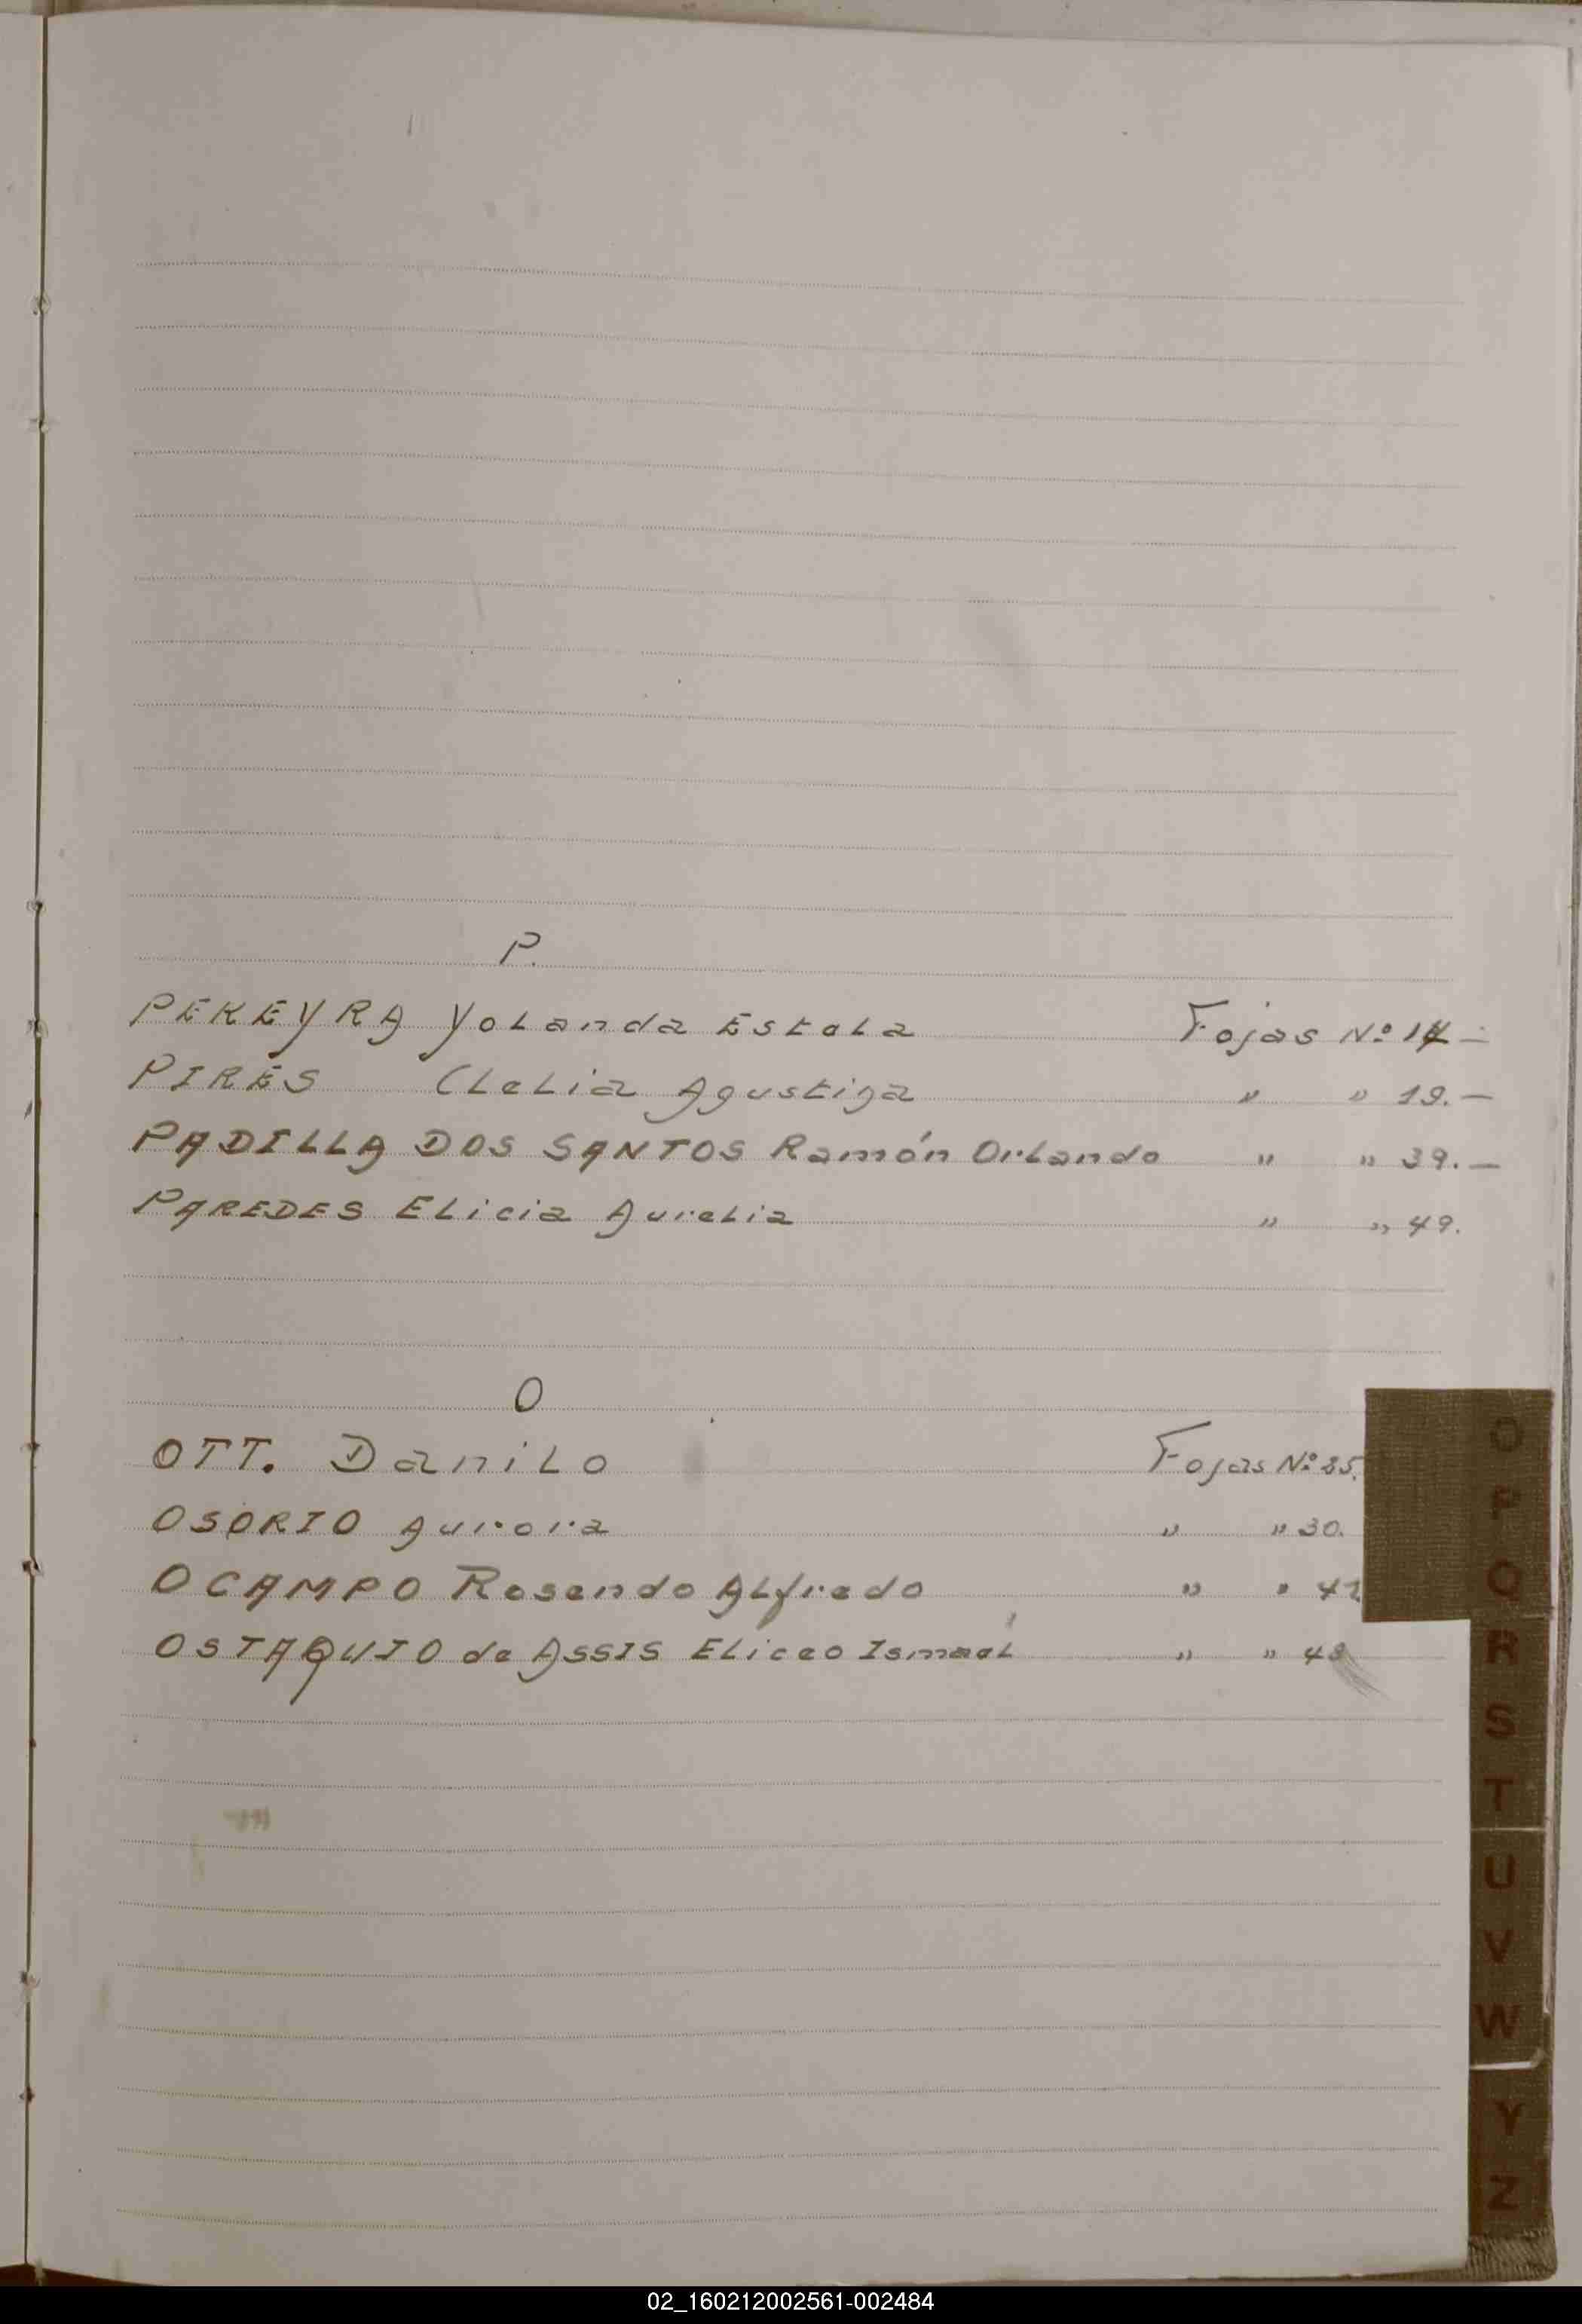 P.
PEREYRA Yolanda Estela Fojas Nº 14 -
PIRES Clelia Agustina " " 19. -
PADILLA DOS SANTOS Ramón Orlando " " 39. -
PAREDES Elicia Aurelia " " 49.
O
OTT. Danilo Fojas Nº 25.
OSORIO Aurora " " 30.
OCAMPO Rosendo Alfredo " " 41
OSTAQUIO de ASSIS Eliceo Ismael " " 48
O
P
Q
R
S
T
U
V
W
Y
Z
02_160212002561-002484